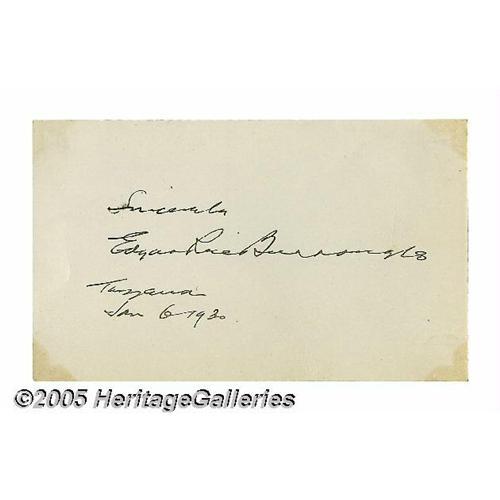 Sincerely
Edgar Rice Burroughs
Tarzana
Jan 6 1930
©2005 HeritageGalleries